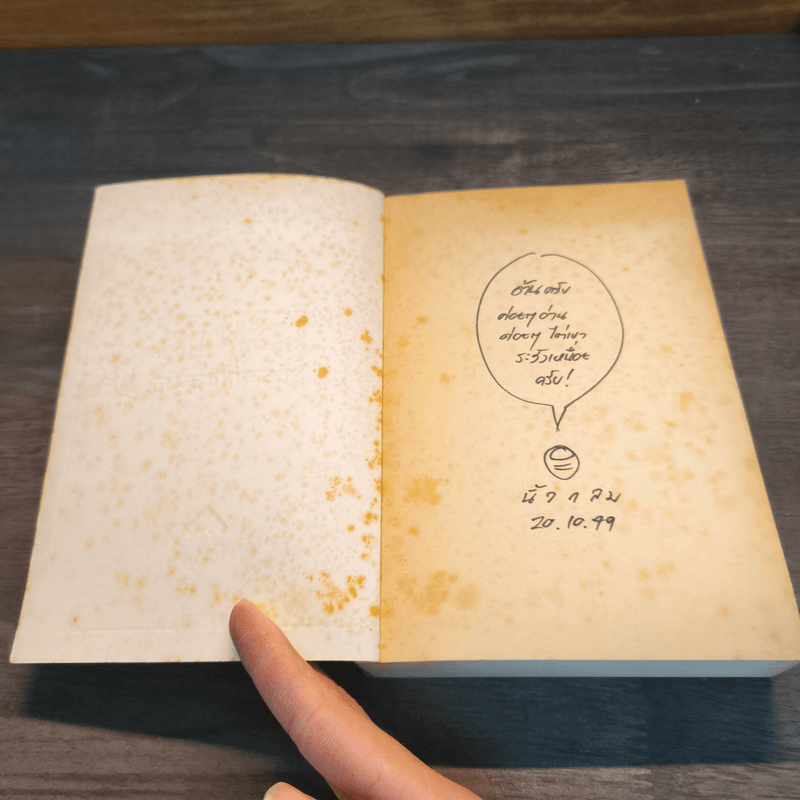 ครับ
ค่อยๆ อ่าน
ค่อยๆ ไต่เขา
ระวังเหนื่อย
ครับ!
นิ้วกลม
20.10.49